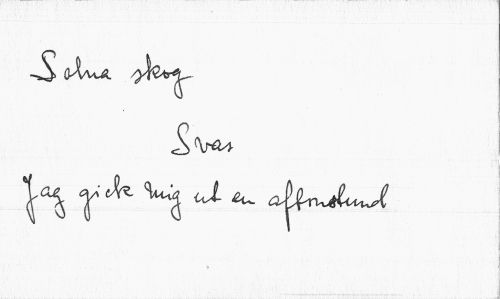 Solna skog
Svas
Jag gick mig ut en aftonstund